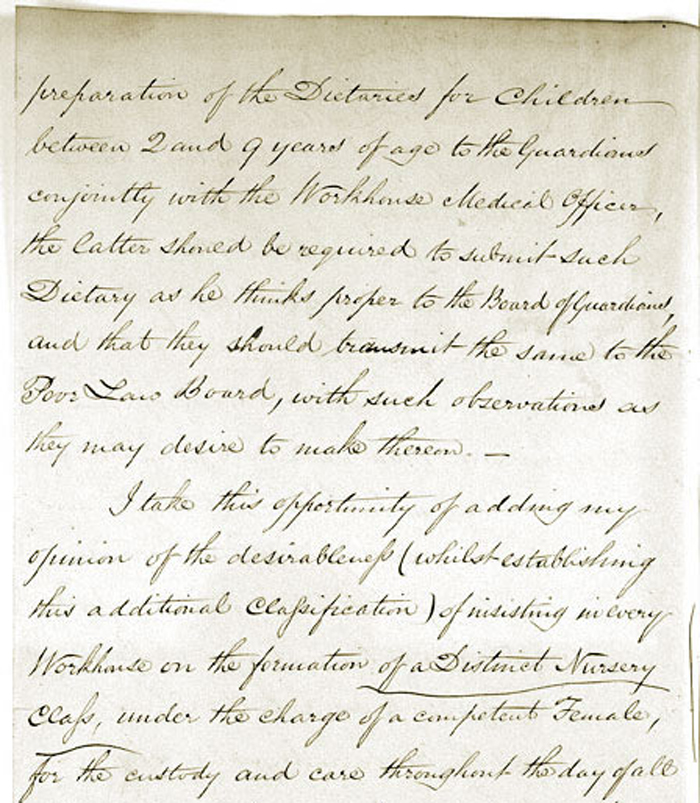 preparation of the Dietaries for Children
between 2 and 9 years of age to the Guardians
conjointly with the Workhouse Medical Officer,
the latter should be required to submit such
Dietary as he thinks proper to the Board of Guardians,
and that they should transmit the same to the
Poor Law Board, with such observations as
they may desire to make thereon. —
I take this opportunity of adding my
opinion of the desirableneſs (whilst establishing
this additional Claſsification) of insisting in every
Workhouse on the formation of a Distinct Nursery
Claſs, under the charge of a competent Female,
for the custody and care throughout the day of all